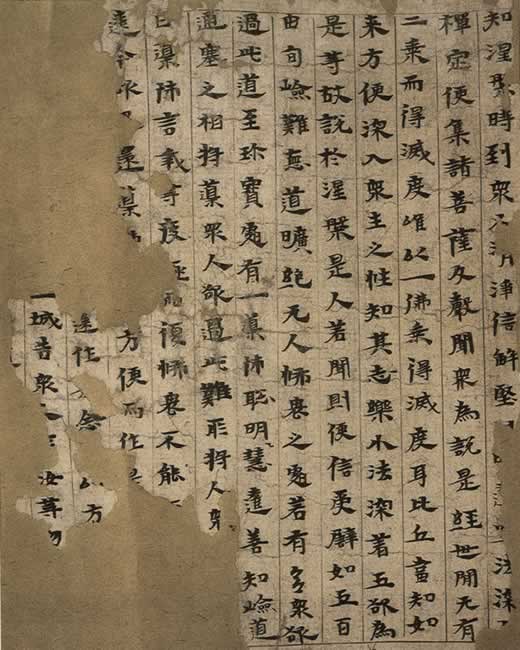 知涅槃時到衆又清淨信解堅法深
禪定便集諸菩薩及聲聞衆為說是経世間无有
二乗而得滅度唯以一佛乗得滅度耳比丘當知如
来方便深入衆生之性知其志樂小法深著五欲為
是等故說於涅槃是人若聞則便信受譬如五百
由旬嶮難悪道曠絶无人怖畏之處若有多衆欲
過此道至珎寶處有一導師聡明慧達善知嶮道
通塞之相將導衆人欲過此難所將人衆
白導師言我等疲極而復怖畏不能
遠今欲退還導
方便而作是
念以方
一城告衆汝等勿